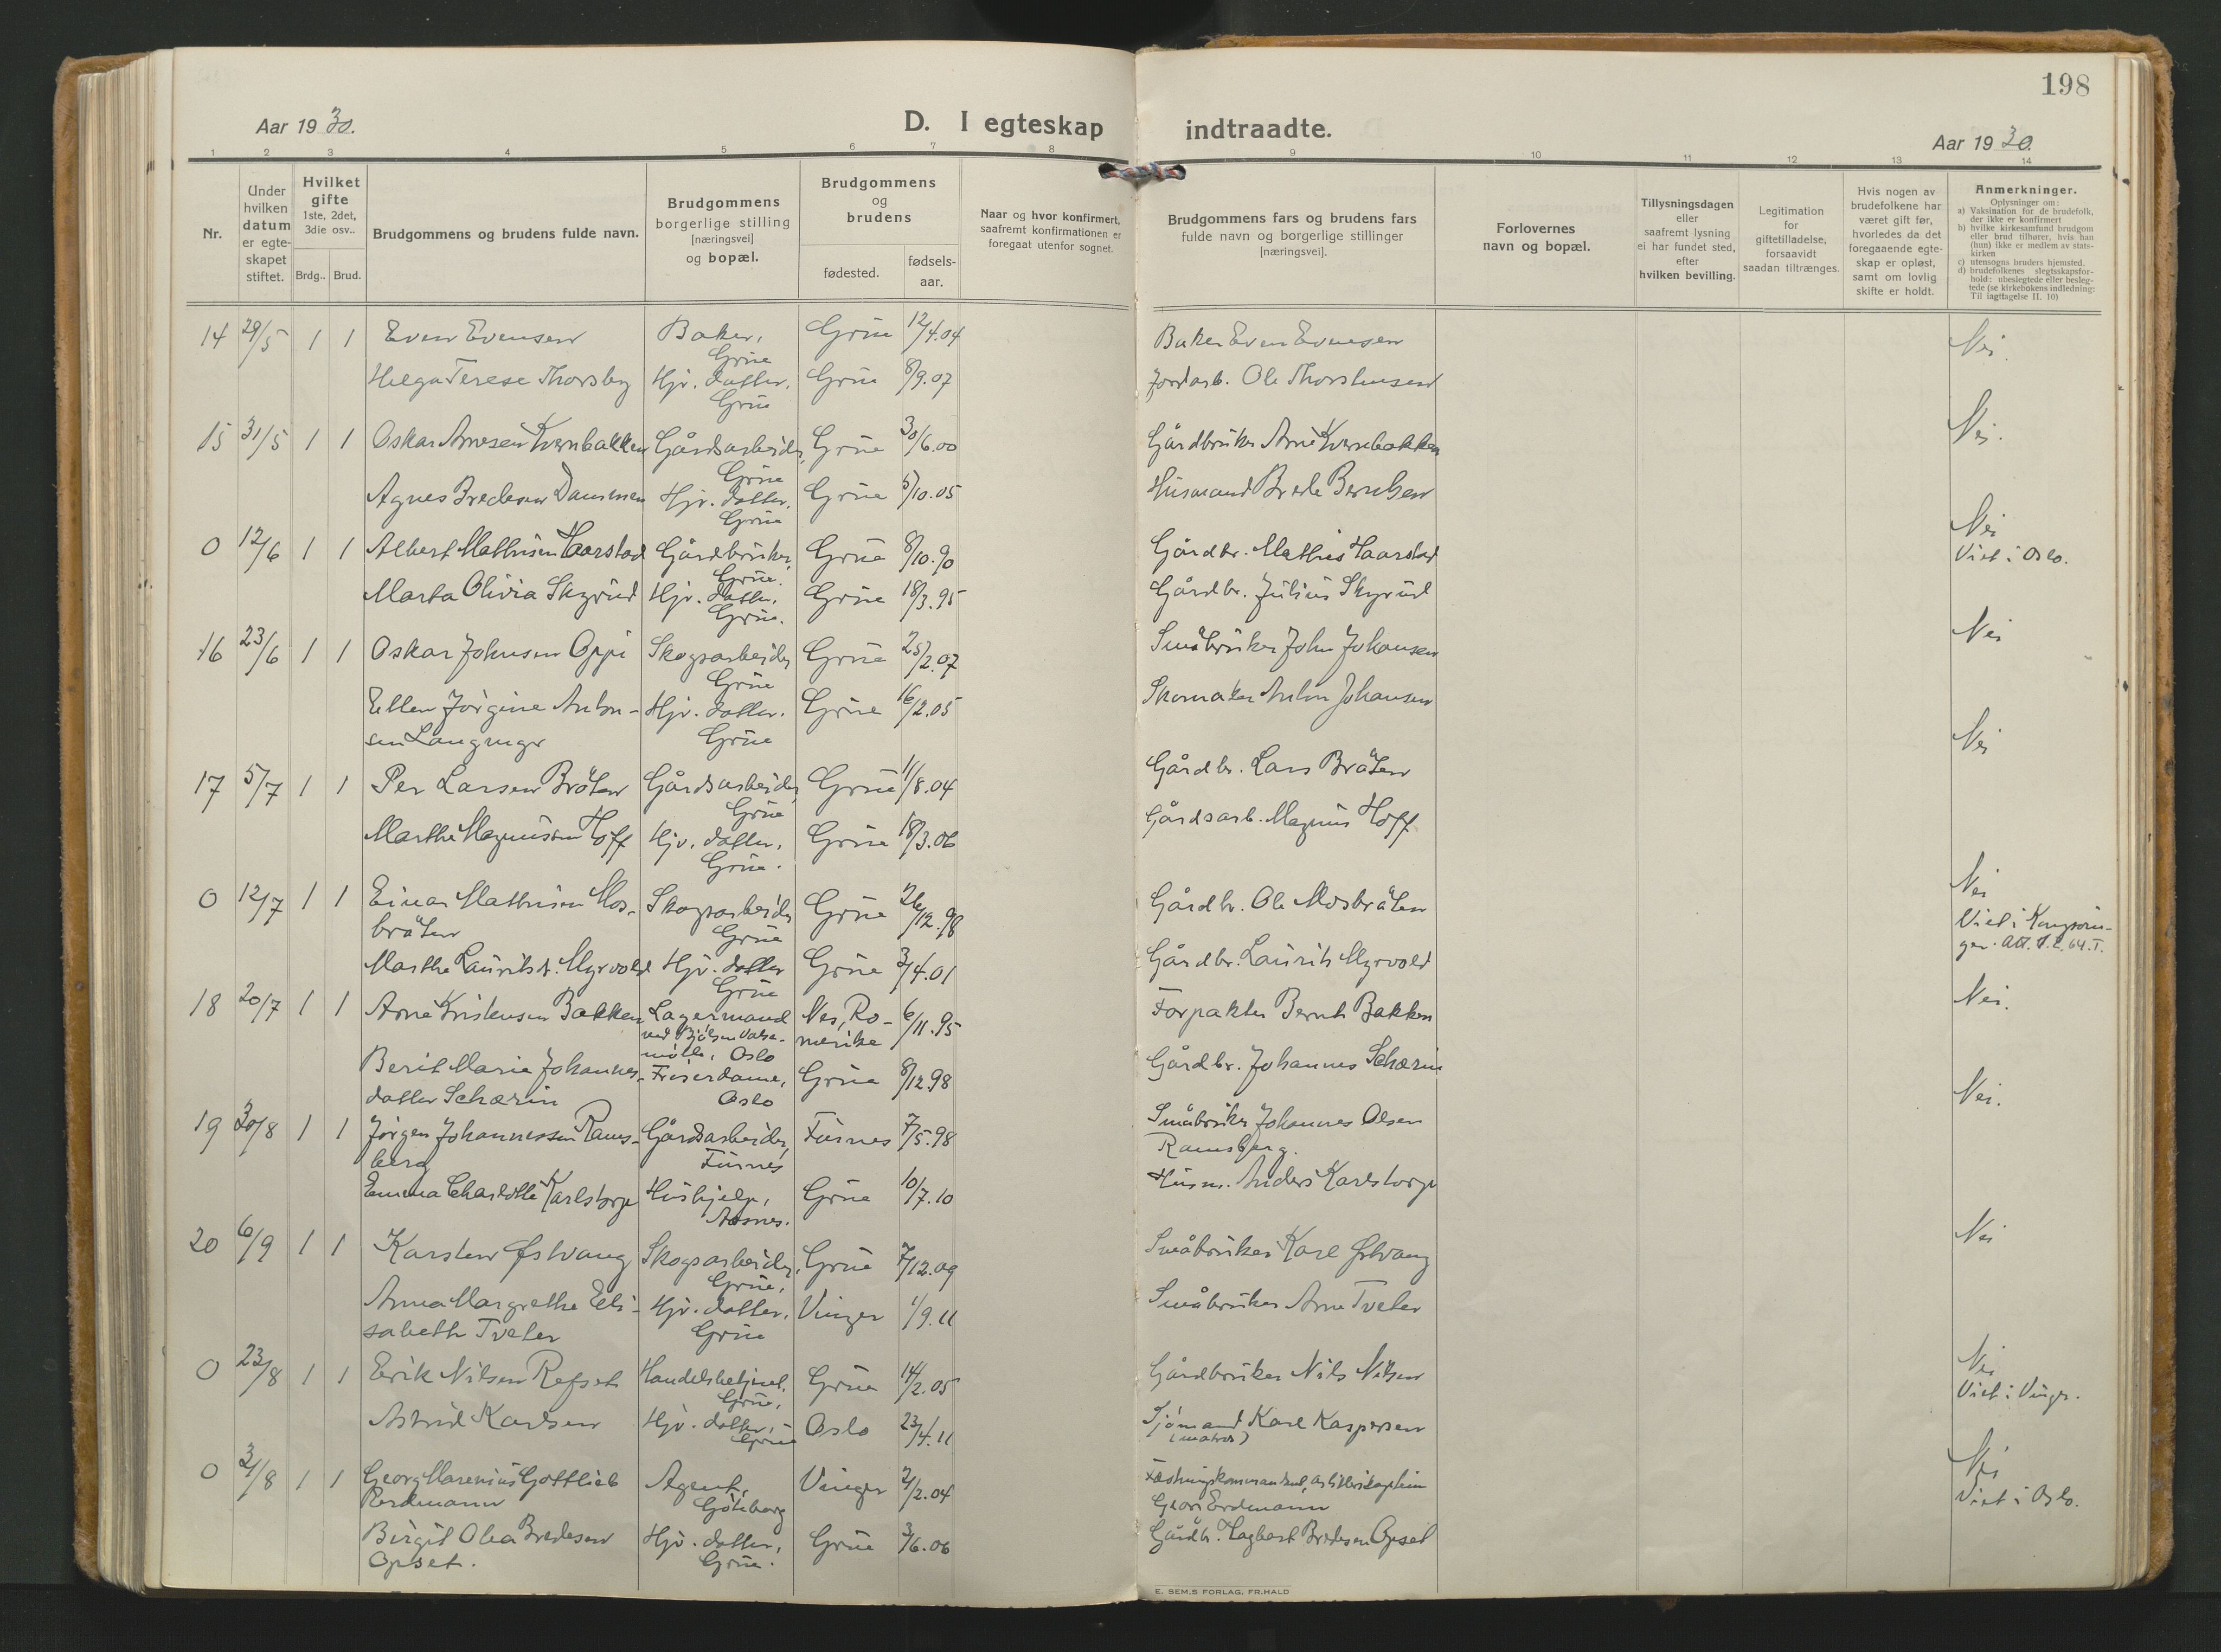 198
Aar 1930.
D. I egteskap indtraadte.
Aar 1930.
1 2 3 4 5 6 7 8 9 10 11 12 13 14
Nr.
Under hvilken datum er egteskapet stiftet.
Hvilket gifte 1ste, 2det, 3die osv..
Brdg.. Brud.
Brudgommens og brudens fulde navn.
Brudgommens borgerlige stilling [næringsvei] og bopæl.
Brudgommens og brudens
fødested. fødselsaar.
Naar og hvor konfirmert, saafremt konfirmationen er foregaat utenfor sognet.
Brudgommens fars og brudens fars fulde navn og borgerlige stillinger [næringsvei].
Forlovernes navn og bopæl.
Tillysningsdagen eller saafremt lysning ei har fundet sted, efter hvilken bevilling.
Legitimation for giftetilladelse, forsaavidt saadan tiltrænges.
Hvis nogen av brudefolkene har været gift før, hvorledes da det foregaaende egteskap er opløst, samt om lovlig skifte er holdt.
Anmerkninger.
Oplysninger om:
a) Vaksination for de brudefolk, der ikke er konfirmert
b) hvilke kirkesamfund brudgom eller brud tilhører, hvis han (hun) ikke er medlem av statskirken
c) utensogns bruders hjemsted.
d) brudefolkenes slegtsskapsforhold: ubeslegtede eller beslegtede (se kirkebokens indledning: Til iagttagelse II. 10)
14 29/5 1 1 Even Evensen Baker, Grue Grue 12/4.04 Baker Even Evensen Nei.
Helga Terese Thorsby Hjv. datter, Grue Grue 8/9.07 Jordarb. Ole Thorstensen
15 31/5 1 1 Oskar Arnesen Kvernbakken Gårdsarbeider, Grue Grue 30/6.00 Gårdbruker Arne Kvernbakken Nei.
Agnes Bredesen Dammen Hjv. datter, Grue Grue 5/10.05 Husmand Brede Berntsen
0 12/6 1 1 Albert Mathisen Haarstad Gårdbruker, Grue. Grue 8/10.90 Gårdbr. Mathis Haarstad Nei Viet i Oslo.
Marta Olivia Skyrud Hjv. datter, Grue. Grue 18/3.95 Gårdbr. Julius Skyrud
16 23/6 1 1 Oskar Johnsen Oppi Skogsarbeider, Grue Grue 25/2.07 Småbruker John Johansen Nei
Ellen Jørgine Antonsen Langnger Hjv. datter. Grue Grue 16/2.05 Skomaker Anton Johansen
17 5/7 1 1 Per Larsen Bråten Gårdsarbeider, Grue Grue 11/8.04 Gårdbr. Lars Bråten Nei
Marthe Magnusen Hoff Hjv. datter, Grue. Grue 18/3.06 Gårdsarb. Magnus Hoff
0 12/7 1 1 Einar Mathisen Mosbråten Skogsarbeider Grue Grue 26/12.98 Gårdbr. Ole Mosbråten Nei Viet i Kongsvinger.
Marthe Laurits d. Myrvold Hjv. datter Grue Grue 3/4.01 Gårdbr. Laurits Myrvold
18 20/7 1 1 Arne Kristensen Bakken Lagermand ved Bjølsen Valsemølle, Oslo Nes, Romerike 6/11.95 Forpakter Bernt Bakken Nei.
Berit Marie Johannesdatter Schærin Friserdame, Oslo Grue 8/12 98 Gårdbr. Johannes Schærin
19 30/8 1 1 Jørgen Johannessen Ramsberg Gårdsarbeider, Furnes Furnes 7/5.98 Småbruker Johannes Olsen Ramsberg. Nei.
Emma Charlotte Karlstorp Hushjelp, Aasnes. Grue 10/7.10 Husm. Anders Karlstorp
20 6/9 1 1 Karsten Østvang Skogsarbeider, Grue, Grue 7/12.09 Småbruker Karl Østvang Nei
Anna Margrethe Elisabeth Tveter Hjv. datter, Grue Vinger 1/9.11 Småbruker Arne Tveter
0 23/8 1 1 Erik Nilsen Refset Handelsbetjent, Grue, Grue 14/2.05 Gårdbruker Nils Nilsen Nei Viet i Vinger.
Astrid Karlsen Hjv. datter, Grue Oslo 23/4.11 Sjømand Karl Kaspersen (matros)
0 31/8 1 1 Georg Marenius Gottlieb Erdmann Agent, Göteborg Vinger 2/2.04 Festningskommandant, artillerikaptein Georg Erdmann Nei Viet i Oslo.
Birgit Olea Bredesen Opset. Hjv. datter, Grue. Grue 3/6.06 Gårdbr. Dagbart Bredesen Opset
E. SEM,S FORLAG, FR.HALD